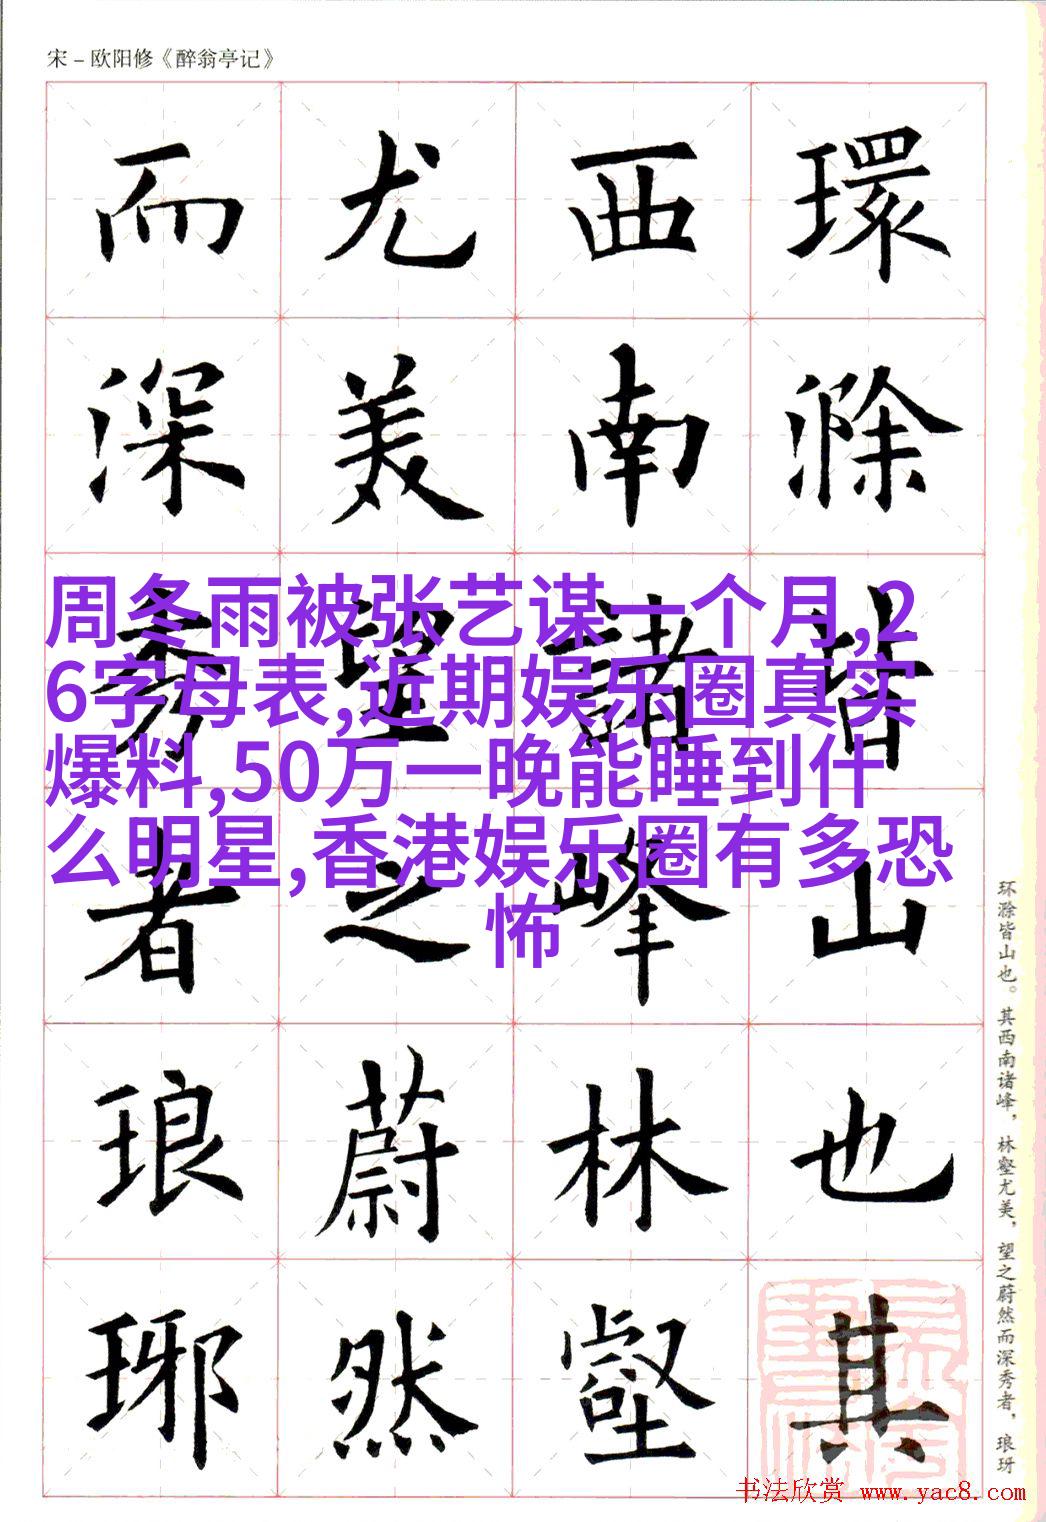 宋－欧阳修《醉翁亭记》
環滁皆山也其
西南諸峰林壑
尤美望之蔚然
而深秀者琅琊
周冬雨被张艺谋一个月,2
6字母表,近期娱乐圈真实
爆料,50万一晚能睡到什
么明星,香港娱乐圈有多恐
怖
环滁皆山也。其西南诸峰，林壑尤美，望之蔚然而深秀者，琅玡
书法欣赏 www.yac8.com